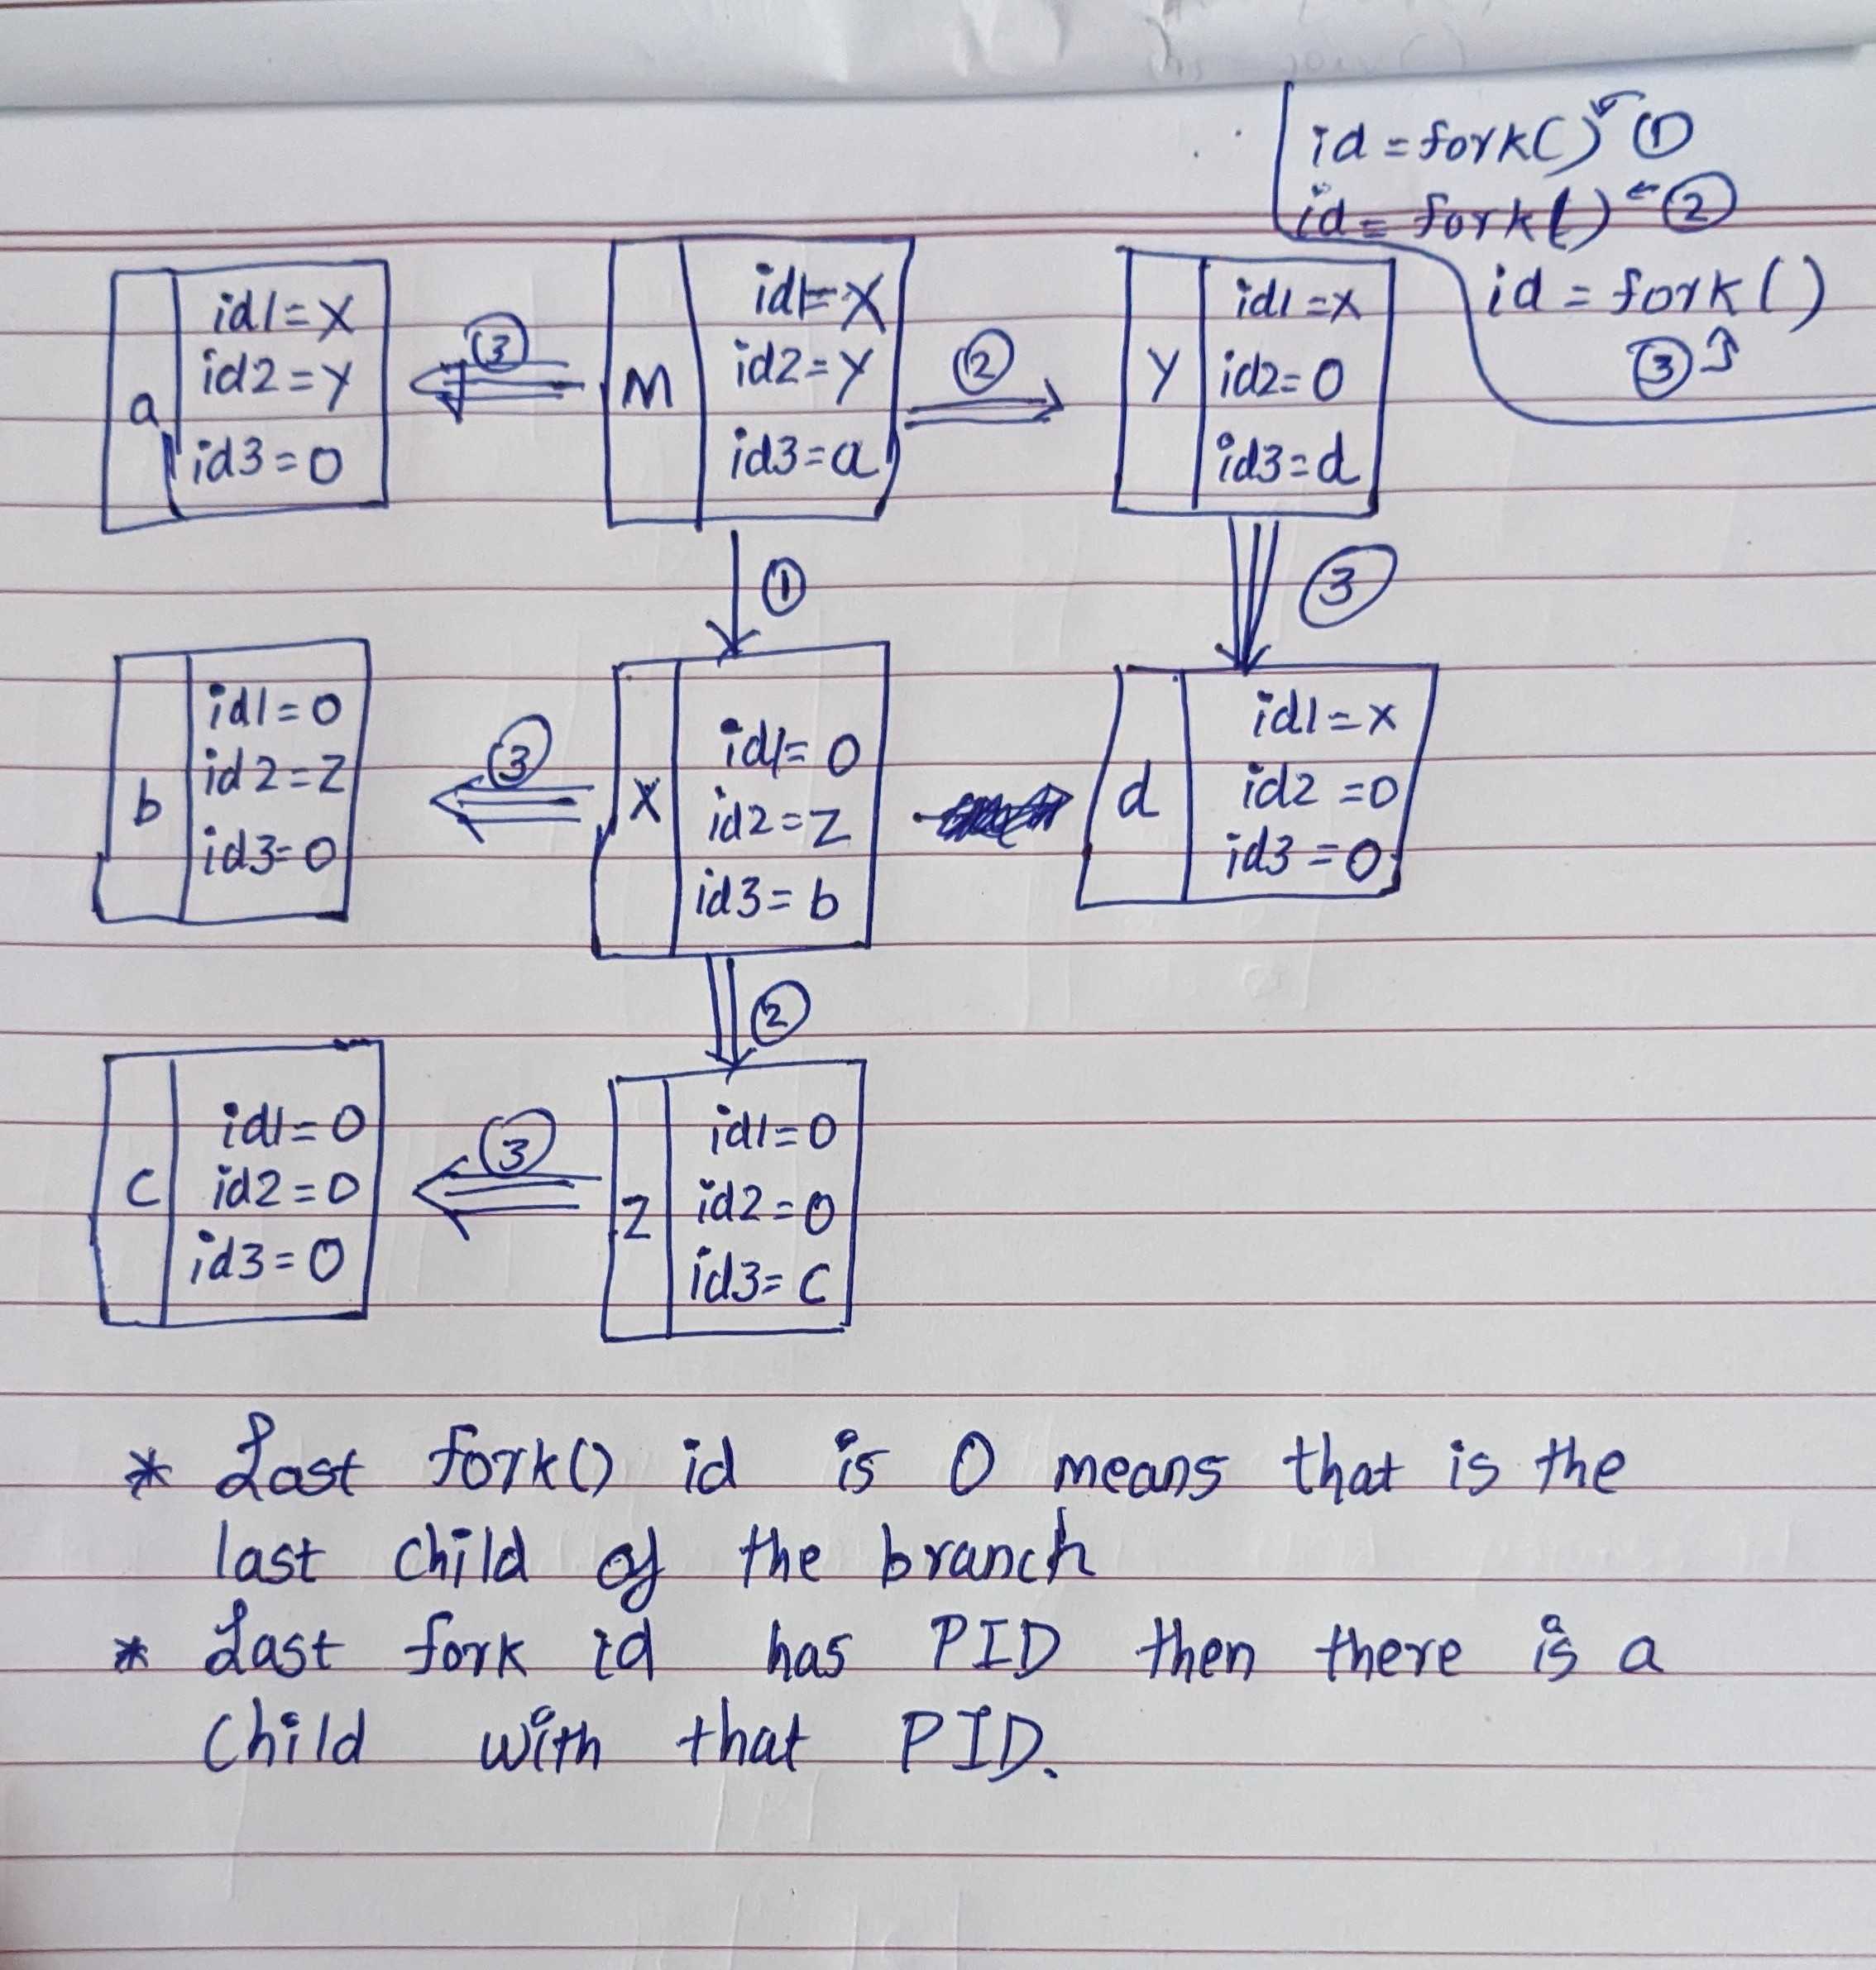 id = fork() ①
id = fork() ←②
id = fork()
③↑
a
id1=X
id2=Y
id3=0
③
M
id1=X
id2=Y
id3=a
②
Y
id1=X
id2=0
id3=d
①
③
b
id1=0
id2=Z
id3=0
③
X
id1=0
id2=Z
id3=b
d
id1=X
id2=0
id3=0
②
C
id1=0
id2=0
id3=0
③
Z
id1=0
id2=0
id3=C
* Last fork() id is 0 means that is the
last child of the branch
* Last fork id has PID then there is a
Child with that PID.